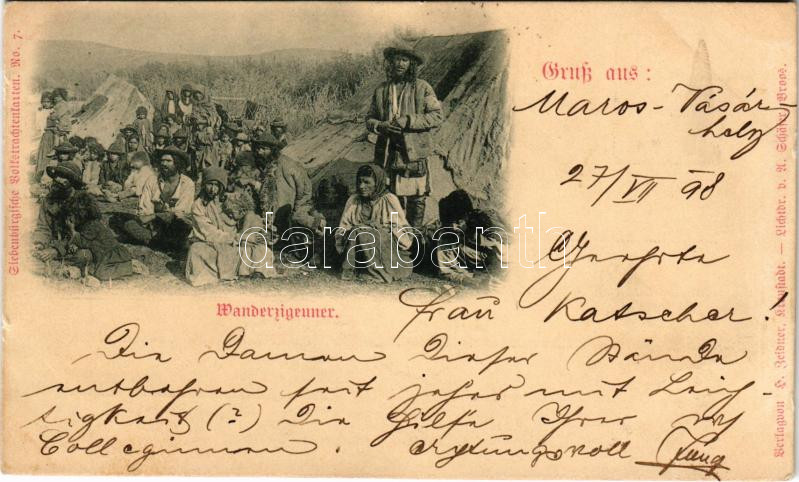 Siebenbürgische Volkstrachtenkarten. No. 7.
Gruß aus:
Maros-Vásár-
hely
27/VII 98
Geehrte
Wanderzigeuner.
Frau Katscher!
Die Damen dieser Stände
entbehren seit jeher mit Leich-
tigkeit (?) die Hilfe Ihrer
Colleginnen. achtungsvoll Jung
Verlag von H. Zeidner, Kronstadt. — Lichtdr. v. A. Schäser, Broos.
darabanth